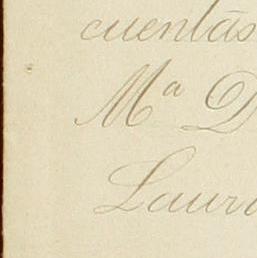 cuentas
Mª D
Laura